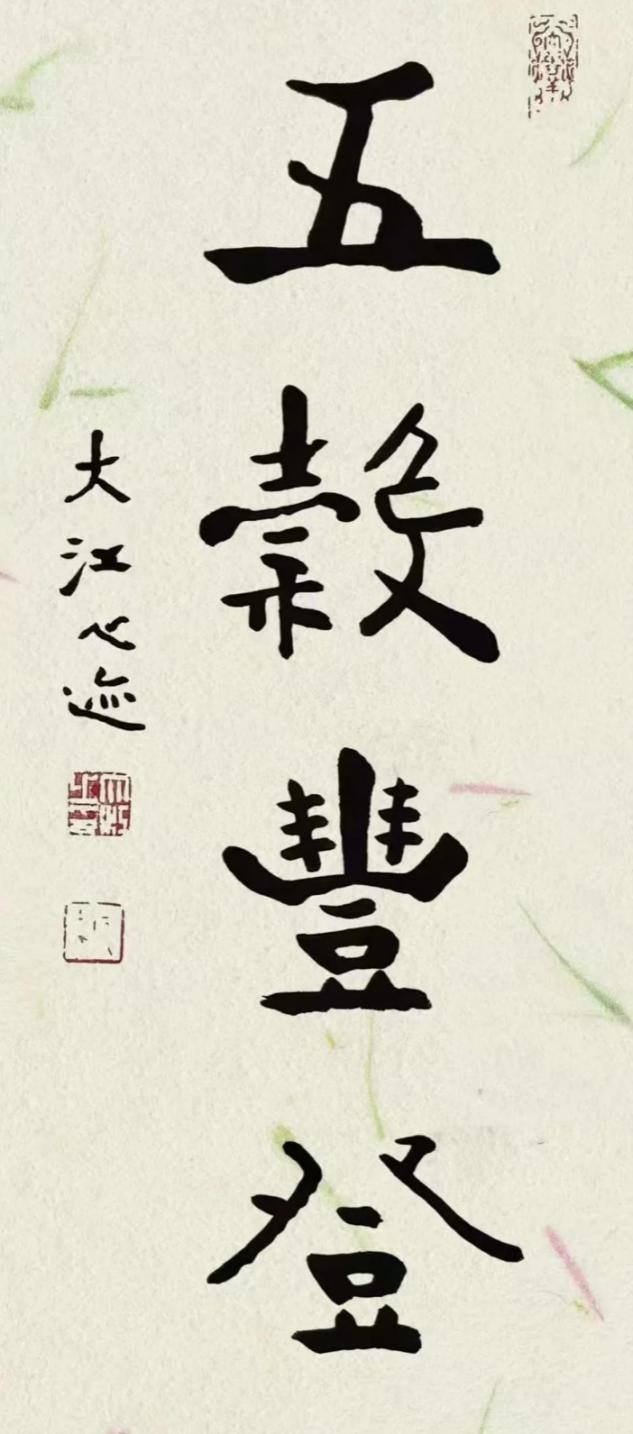 五穀豐登
大江心迹